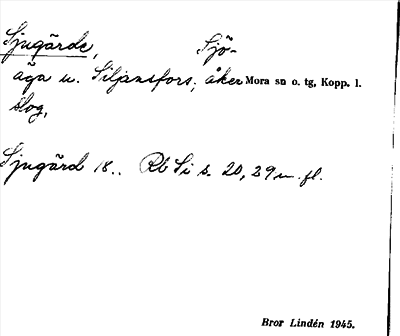 Sjugärde, Sjö-
äga u. Siljansfors; åker Mora sn o. tg, Kopp. l.
slog,
Sjugärd 18.. Rb Si s. 20, 29 m. fl.
Bror Lindén 1945.